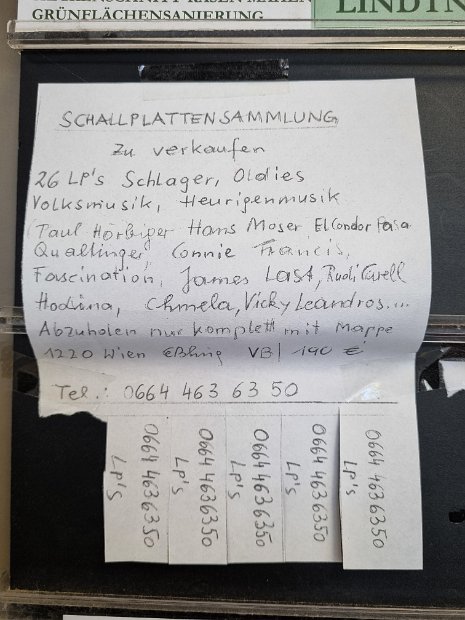 GRÜNFLÄCHENSANIERUNG
SCHALLPLATTENSAMMLUNG
zu verkaufen
26 LP's Schlager, Oldies
Volksmusik, Heurigenmusik
Paul Hörbiger Hans Moser El Condor Pasa
Qualtinger, Connie Francis,
Fascination, James Last, Rudi Carell
Hodina, Chmela, Vicky Leandros...
Abzuholen nur komplett mit Mappe
1220 Wien Eßling VB/ 190 €
Tel.: 0664 463 63 50
0664 4636350
LP's
0664 4636350
LP's
0664 4636350
LP's
0664 4636350
LP's
0664 4636350
LP's